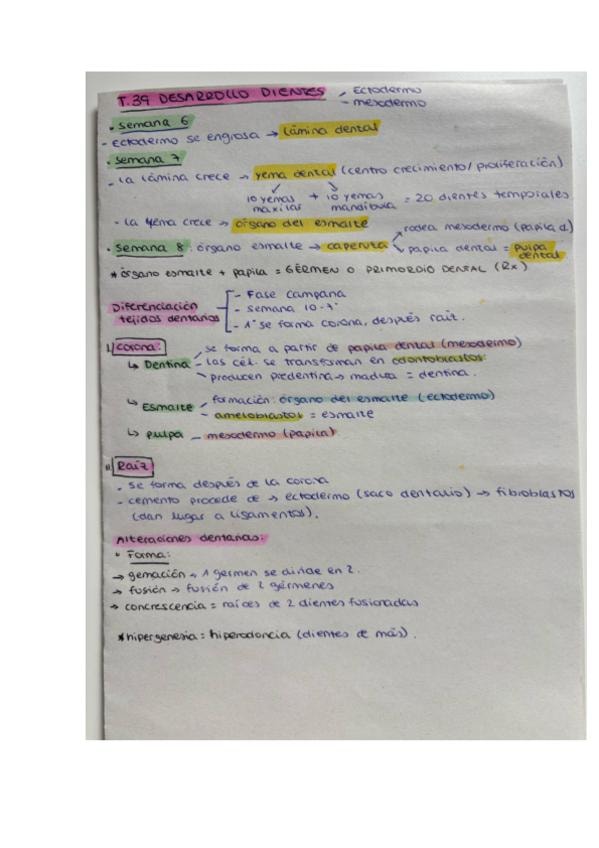 T.39 DESARROLLO DIENTES - Ectodermo
- mesodermo
• semana 6
- Ectodermo se engrosa → Lámina dental
• semana 7
- La lámina crece → yema dental (centro crecimiento/proliferación)
10 yemas maxilar + 10 yemas mandíbula = 20 dientes temporales
- La yema crece → órgano del esmalte
rodea mesodermo (papila d.)
• semana 8: órgano esmalte → caperuza
papila dental = pulpa dental
* órgano esmalte + papila = GÉRMEN O PRIMORDIO DENTAL (Rx)
Diferenciación tejidos dentarios
- Fase campana
- semana 10
- 1º se forma corona, después raíz.
I) corona:
↳ Dentina
- se forma a partir de papila dental (mesodermo)
- las cél. se transforman en odontoblastos
- producen predentina → madura = dentina.
↳ Esmalte
- formación: órgano del esmalte (ectodermo)
- ameloblastos = esmalte
↳ pulpa - mesodermo (papila)
II) Raíz
- se forma después de la corona
- cemento procede de → ectodermo (saco dentario) → fibroblastos
(dan lugar a ligamentos).
Alteraciones dentarias:
• Forma:
→ gemación → 1 germen se divide en 2.
→ fusión → fusión de 2 gérmenes
→ concrescencia = raíces de 2 dientes fusionadas
* hipergenesia = hiperodoncia (dientes de más).